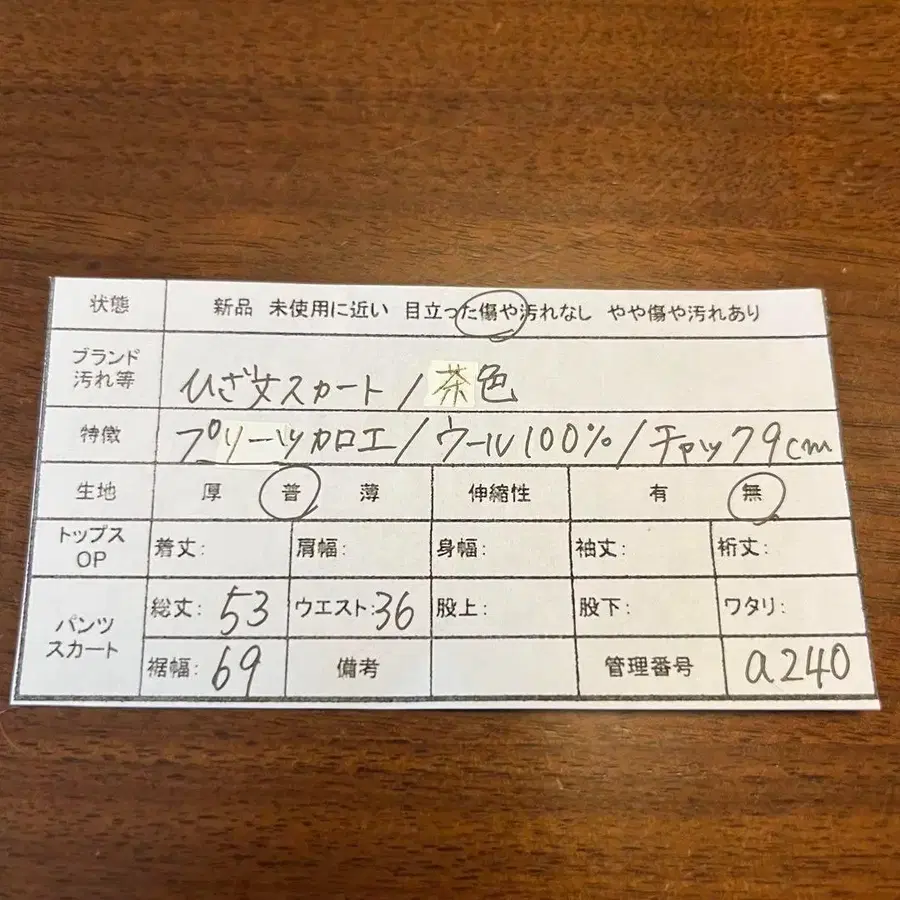 状態 新品 未使用に近い 目立った傷や汚れなし やや傷や汚れあり
ブランド
汚れ等 ひざ丈スカート/茶色
特徴 プリーツカロエ/ウール100%/チャック9cm
生地 厚 普 薄 伸縮性 有 無
トップス
OP 着丈: 肩幅: 身幅: 袖丈: 裄丈:
パンツ
スカート 総丈: 53 ウエスト:36 股上: 股下: ワタリ:
裾幅: 69 備考 管理番号 a240